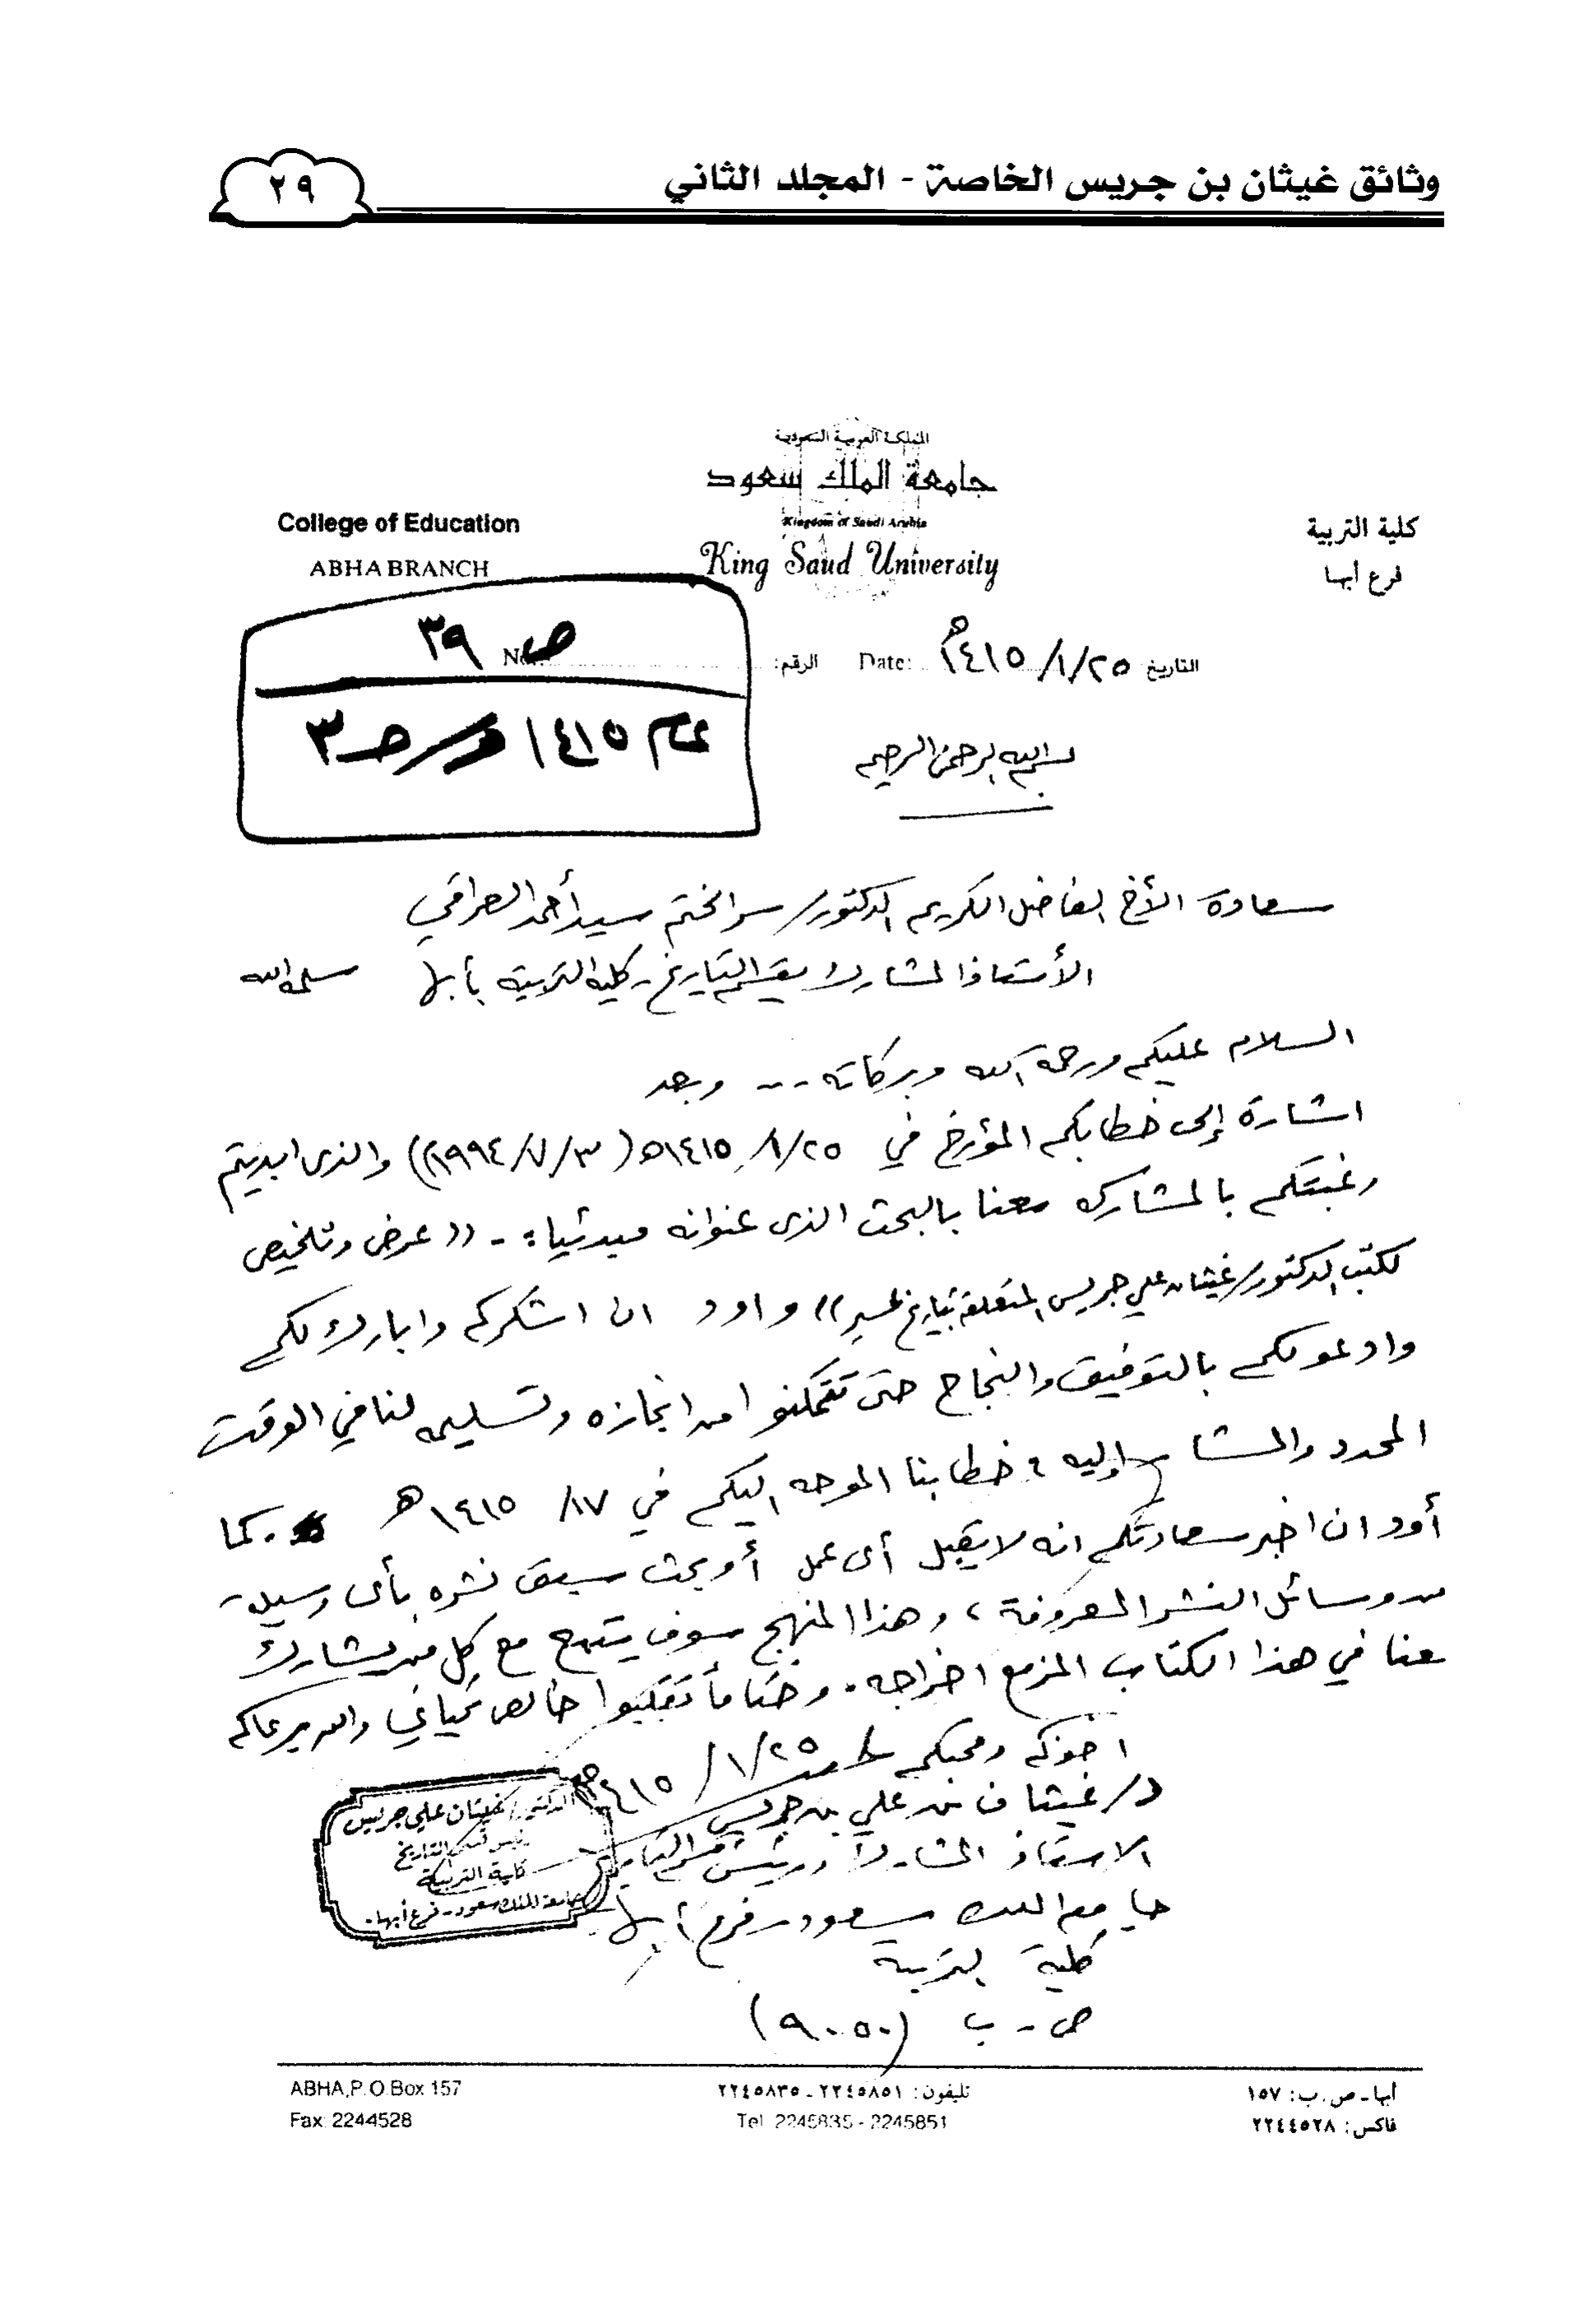 وثائق غيثان بن جريس الخاصة - المجلد الثاني
٢٩
المملكة العربية السعودية
جامعة الملك سعود
Kingdom of Saudi Arabia
King Saud University
كلية التربية
فرع أبها
College of Education
ABHA BRANCH
التاريخ ١٤١٥/١/٢٥هـ Date:
الرقم: No.
ص ٣٩
عام ١٤١٥
بسم الله الرحمن الرحيم
سعادة الأخ الفاضل الكريم الدكتور/ سر الختم سيد أحمد العراقي
الأستاذ المشارك بقسم التاريخ - كلية التربية بأبها سلمه الله
السلام عليكم ورحمة الله وبركاته --- وبعد
اشارة إلى خطابكم المؤرخ في ١٤١٥/١/٢٥هـ (١٩٩٤/٧/٣م) والذى ابديتم
رغبتكم بالمشاركه معنا بالبحث الذى عنوانه مبدئيا: - ((عرض وتلخيص
لكتب الدكتور/ غيثان علي جريس المتعلقة بتاريخ عسير)) واود ان اشكركم وابارك لكم
وادعو لكم بالتوفيق والنجاح حتى تتمكنوا من انجازه وتسليمه لنا في الوقت
المحدد والمشار إليه في خطابنا الموجه اليكم في ١٧/ ١٤١٥هـ . كما
أود ان اخبر سعادتكم انه لا يقبل أى عمل أو بحث سبق نشره بأى وسيلة
من وسائل النشر المعروفة، وهذا المنهج سوف يتبع مع كل من يشارك
معنا في هذا الكتاب المزمع اخراجه. وختاماً تقبلوا خالص تحياتي والله يرعاكم
اخوكم ومحبكم ١٤١٥/١/٢٥هـ
د/ غيثان بن علي بن جريس
الاستاذ المشارك ورئيس قسم التاريخ
جامعة الملك سعود - فرع أبها
كلية التربية
ص - ب (٩٠٥٠)
الدكتور/ غيثان علي جريس
رئيس قسم التاريخ
كلية التربية
جامعة الملك سعود - فرع أبها.
أبها - ص. ب: ١٥٧
فاكس: ٢٢٤٤٥٢٨
تليفون: ٢٢٤٥٨٥١ - ٢٢٤٥٨٣٥
Tel. 2245835 - 2245851
ABHA, P.O.Box 157
Fax: 2244528